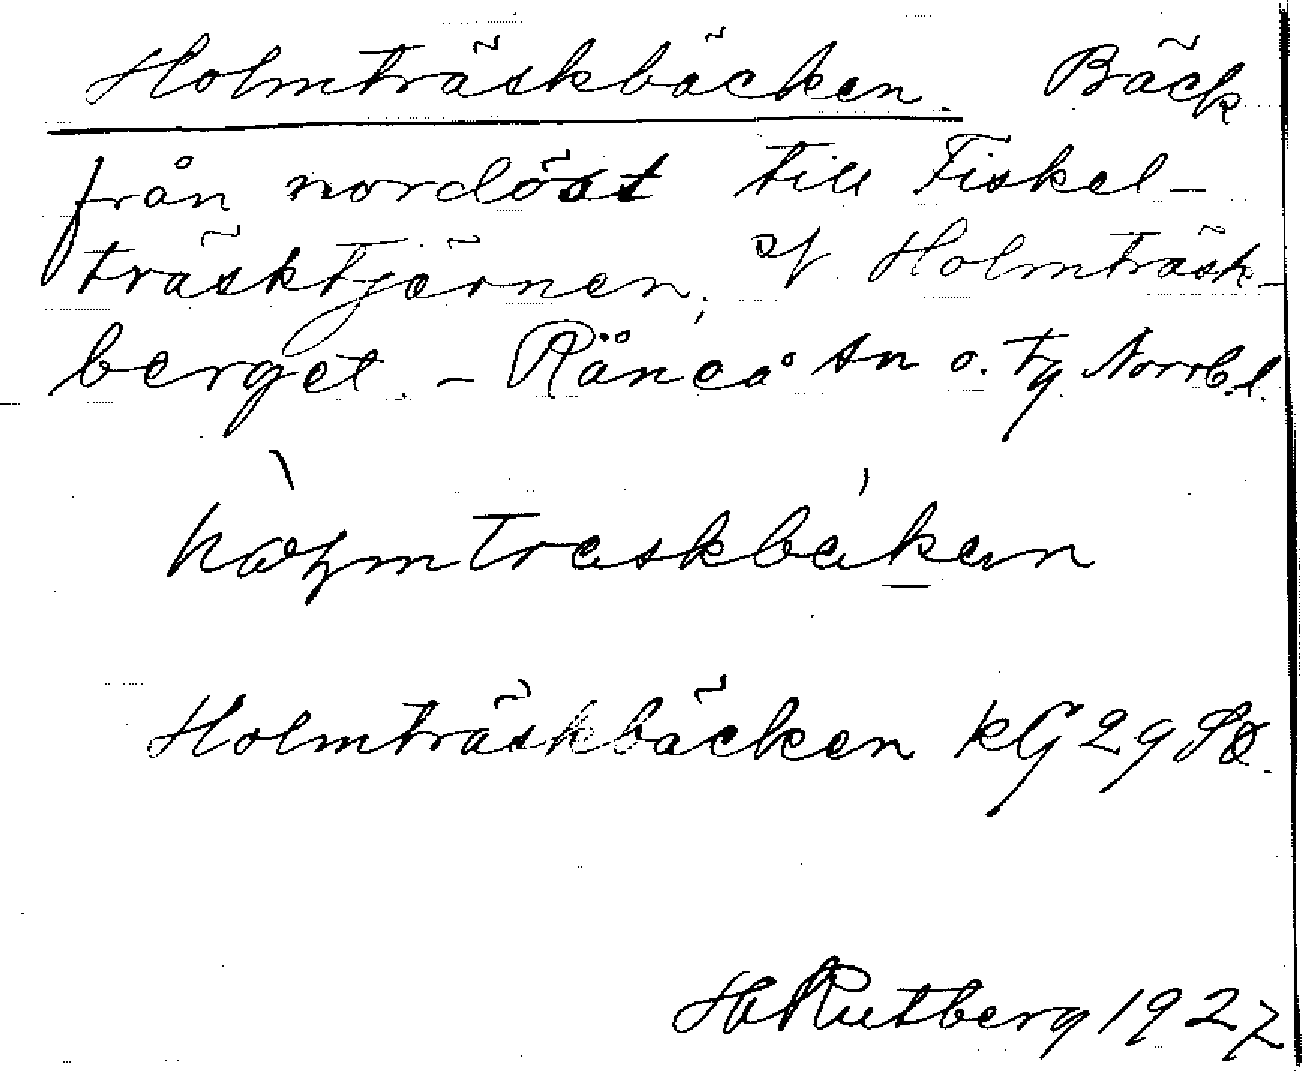 Holmträskbäcken. Bäck
från nordöst till Fiskel-
träsktjärnen, N. Holmträsk-
berget. - Råneå sn o. tg. Norrb.l.
Holmträskbäcken kG 29 SO.
H Rutberg 1927